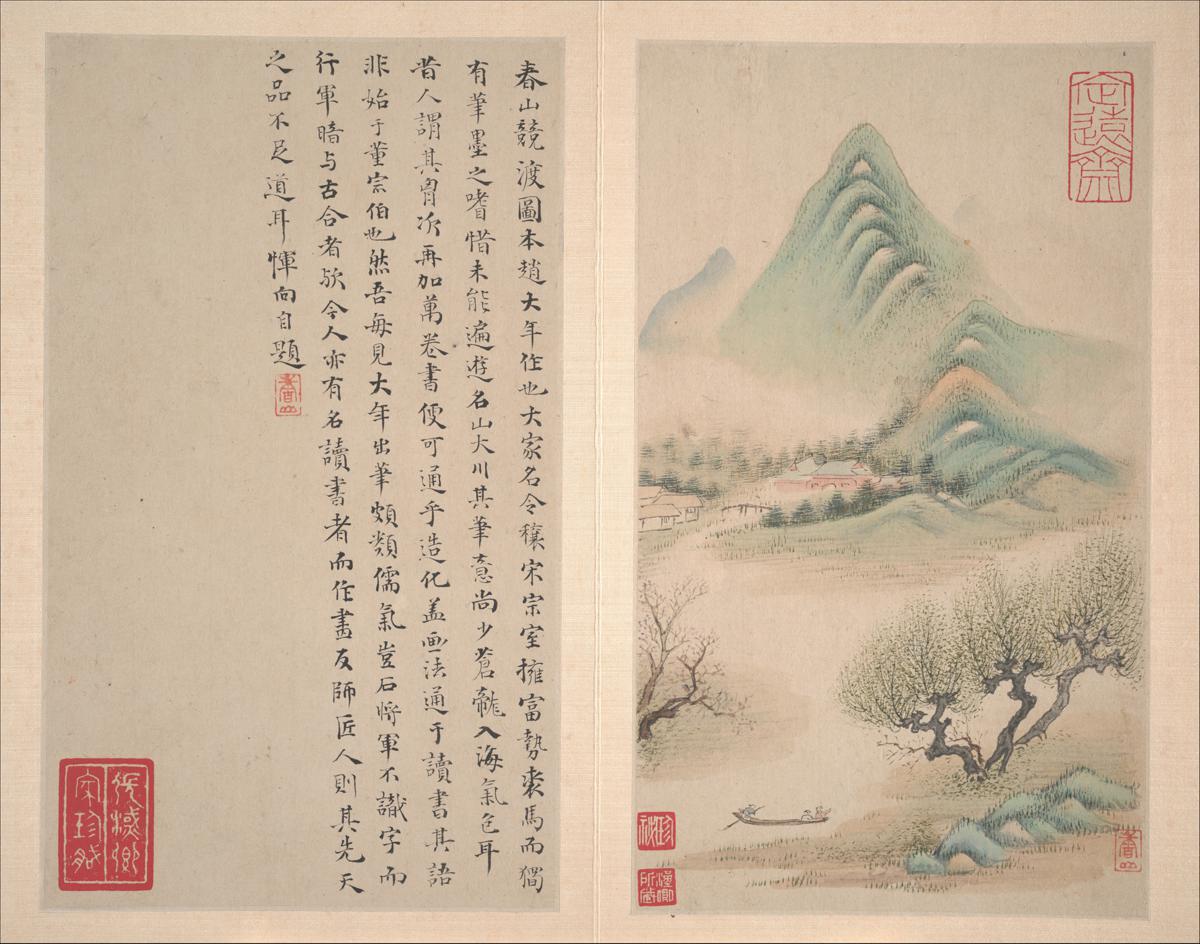 春山競渡圖本趙大年作也大家名令穰宋宗室擁富勢裘馬而獨
有筆墨之嗜惜未能遍遊名山大川其筆意尚少蒼巃入海氣色耳
昔人謂其胷次再加萬卷書便可通乎造化盖画法通于讀書其語
非始于董宗伯也然吾每見大年出筆頗類儒氣豈右將軍不識字而
行軍暗与古合者欤今人亦有名讀書者而作畫反師匠人則其先天
之品不足道耳惲向自題
香山
定遠齋
香山
珍祕
漢卿所藏
張漢卿家珍藏